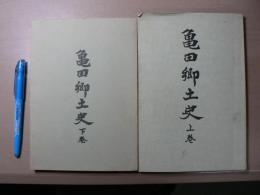 亀田郷土史 上巻
亀田郷土史 下巻